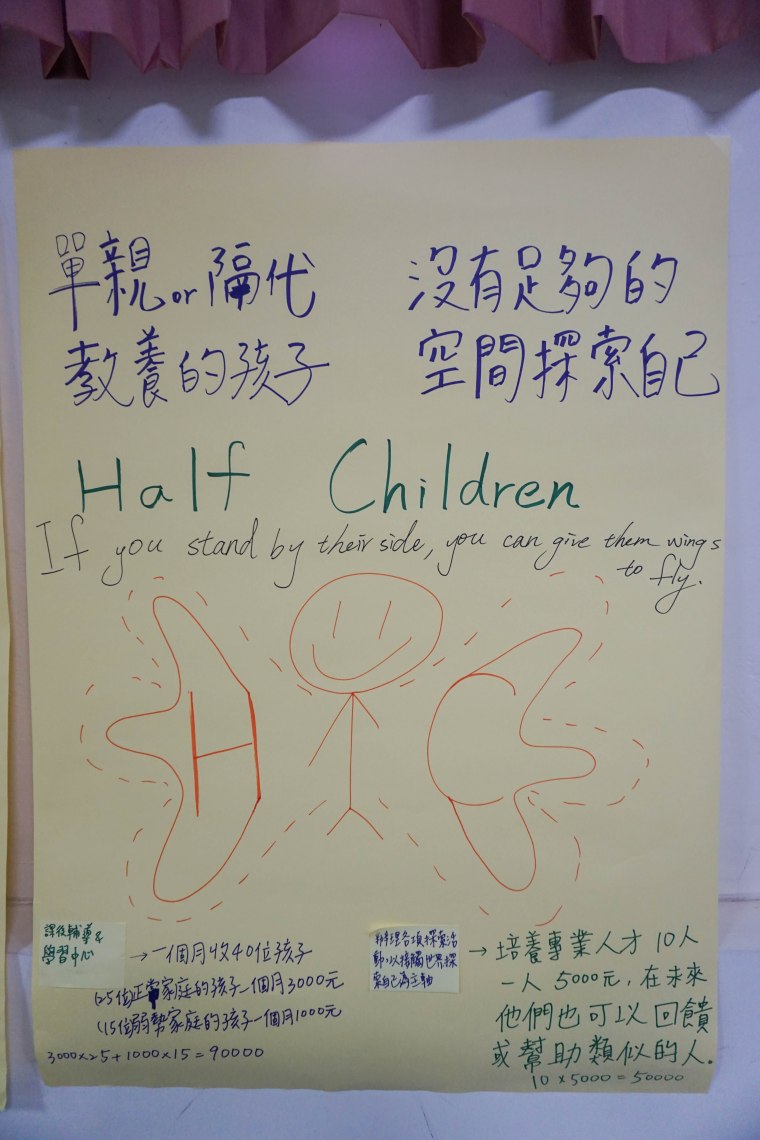 單親or隔代
教養的孩子
沒有足夠的
空間探索自己
Half Children
If you stand by their side, you can give them wings
to fly.
H
C
課後輔導&
學習中心
→一個月收40位孩子
(25位正常家庭的孩子一個月3000元
(15位弱勢家庭的孩子一個月1000元
3000×25+1000×15=90000
辦理各項探索活
動,以接觸世界探
索自己為主軸
→培養專業人才10人
一人5000元,在未來
他們也可以回饋
或幫助類似的人.
10×5000=50000